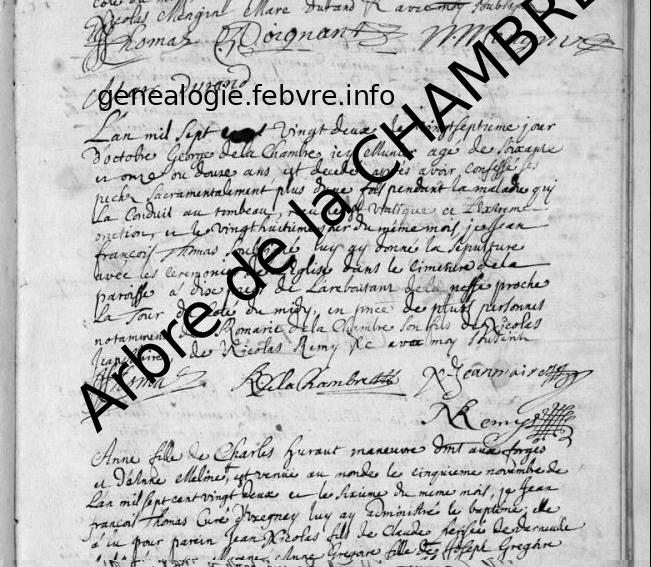 Nicolas Mengin Marc Durand & avec moy soubsignez
Thomas C Poignant N Mengin
Marc Durand
genealogie.febvre.info
Arbre de la CHAMBRE
L'an mil sept cent vingt deux le vingtseptieme jour
d'octobre George de la Chambre icy Munier agé de soixante
et onze ou douze ans est decedé après avoir confessé ses
pechez sacramentalement plus d'une fois pendant la maladie qui
la conduit au tombeau, reçu le st viatique et l'extreme
onction, et le vingthuitieme jour du même mois je Jean
françois Thomas soubsigné luy ay donné la sepulture
avec les ceremonies de l'eglise dans le cimetiere de la
paroisse a dix pieds de Lareboutant de la neffe proche
La Tour du coté du midy, en pnce de plusrs personnes
notamment de Romaric de la Chambre son fils de Nicolas
Jeanvoine de Nicolas Remy &c avec moy soubsnt
Thomas R de la Chambre N Jeanvoine
N Remy
Anne fille de Charles huraut maneuvre dmt aux forges
et d'Anne Meline, est venue au monde le cinquieme novembre de
L'an mil sept cent vingt deux et le sixieme du meme mois, je Jean
françois Thomas Curé d'uxegney luy ay administré le baptême, elle
a eu pour parein Jean Nicolas fils de Claude de darneulle
Anne Gregoire fille de Joseph Gregoire